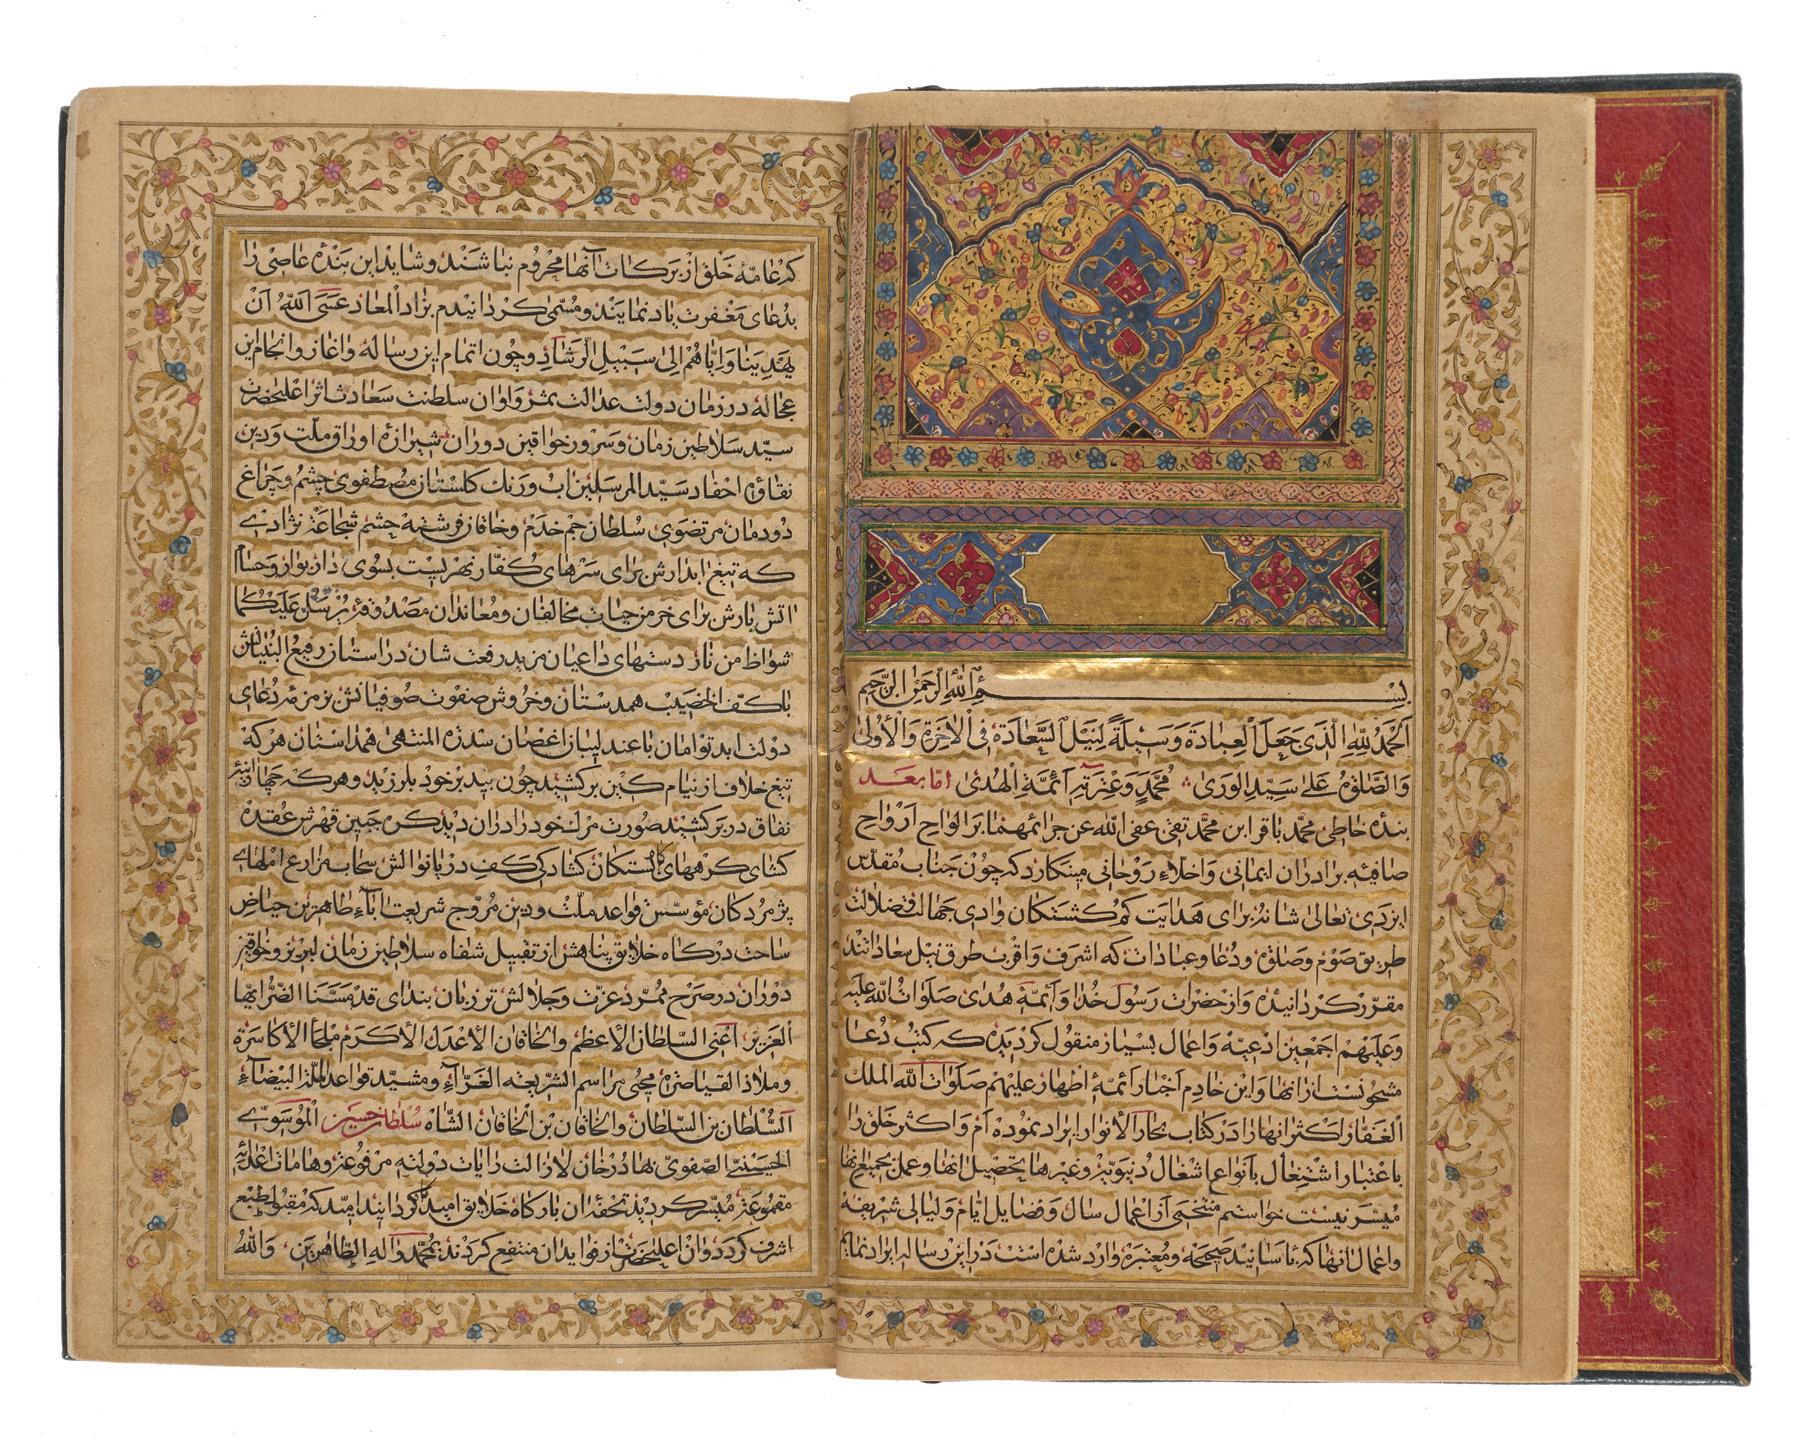 بسم الله الرحمن الرحیم
اَلْحَمْدُ لِلّٰهِ الَّذی جَعَلَ الْعِبادَةَ وَسیلَةً لِنَیْلِ السَّعادَةِ فِی الْاٰخِرَةِ وَالْاُولیٰ
وَالصَّلوٰةُ عَلیٰ سَیِّدِ الْوَریٰ مُحَمَّدٍ وَعِتْرَتِهِ اَئِمَّةِ الْهُدیٰ امّا بعَد
بنده خاطی محمّد باقر ابن محمّد تقی عفی الله عن جرائمهما بر الواح ارواح
صافیه برادران ایمانی و اخلاء روحانی مینکارد که چون جناب مقدّس
ایزدی تعالی شانه برای هدایت کم کشتکان وادی جهالت و ضلالت
طریق صوم و صلوة و دعا و عبادات که اشرف و اقرب طرق نیل سعاداتند
مقرر کردانیده و از حضرات رسول خدا و ائمّه هدی صلوات الله علیه
و علیهم اجمعین ادعیه و اعمال بسیار منقول کردیده که کتب دعا
مشحونست از انها و این خادم اخبار ائمّهٔ اطهار علیهم صلوات الله الملک
الغفار اکثر انها را در کتاب بحار الانوار ایراد نموده ام و اکثر خلق را
باعتبار اشتغال بانواع اشغال دنیویّه و غیرها تحصیل انها و عمل بجمیع انها
میسّر نیست خواستم منتخبی از اعمال سال و فضایل ایّام و لیالی شریفه
و اعمال انها که باسانید صحیحه و معتبره وارد شده است در این رساله ایراد نمایم
که عامهٔ خلق از برکات آنها محروم نباشند و شاید این بندهٔ عاصی را
بدعای مغفرت یاد نمایند و مسمّی کردانیدم بزاد المعاد عسی الله ان
یهدینا و ایاهم الی سبیل الرشاد و چون اتمام این رساله و اغاز و انجام این
عجاله در زمان دولت عدالت ثمر و اوان سلطنت سعادت اثر اعلیحضرت
سیّد سلاطین زمان و سرور خواقین دوران شیرازه اوراق ملّت و دین
نقاوه احفاد سیّد المرسلین اب و رنک کلستان مصطفوی چشم و چراغ
دودمان مرتضوی سلطان جم خدم و خاقان فرشته حشم شجاعت نژادی
که تیغ ابدارش برای سرهای کفّار نهریست بسوی دار بوار و حسام
اتش بارش برای خرمن حیات مخالفان و معاندان مصدوقهٔ یرسل علیکما
شواظ من نار دستهای داعیان مزید رفعت شان در استان رفیع البنیانش
با کف الخضیب همدستان و خروش صفوت صوفیانش بزمزمه دعای
دولت ابد توامان با عندلیبان اغصان سدرة المنتهی همداستان هر که
تیغ خلاف از نیام کین برکشید چون بید بر خود بلرزید و هر که چهار آینه
نفاق در بر کشید صورت مرک خود را دران دید کره جبین قهرش عقده
کشای کرههای کار بستکان کشادکی کف دریا نوالش سحاب مزارع املهای
پژمردکان مؤسس قواعد ملّت و دین مروّج شریعت اباء طاهرین حیاض
ساحت درکاه خلایق پناهش از تقبیل شفاه سلاطین زمان لبریز و خواقین
دوران در صرح ممرّد عزّت و جلالش تر زبان بندای قد مسّنا الضّرّ ایّها
العزیز اعنی السّلطان الاعظم و الخاقان الاعدل الاکرم ملجأ الاکاسرة
و ملاذ القیاصرة محیی مراسم الشریعه الغرّاء و مشیّد قواعد الملّة البیضاء
السّلطان بن السّلطان و الخاقان بن الخاقان الشاه سلطان حسین الموسوی
الحسینی الصّفوی بهادرخان لازالت رایات دولته مرفوعة و هامات اعدائه
مقموعة میسر کردید تحفه ان بارکاه خلایق امیدکاه کردانید امید که مقبول طبع
اشرف کردد و ان اعلیحضرت از فواید ان منتفع کردند بمحمّد و اله الطّاهرین والله